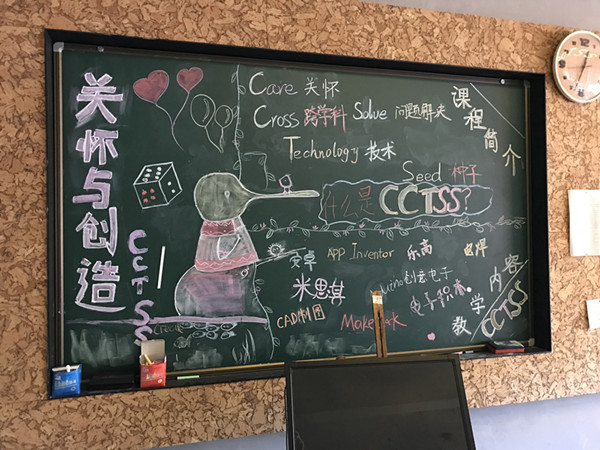 关怀与创造
CCTSS
Care 关怀
Cross 跨学科 Solve 问题解决
Technology 技术
Seed 种子
什么是CCTSS?
课程简介
安卓 APP Inventor 乐高
米思齐
创意电子
电子积木
CAD制图
教学内容
CCTSS